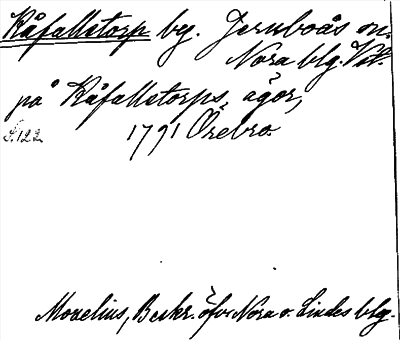 Råfalletorp by. Jernboås sn.
Nora blg. Vstl.
på Råfalletorps ägor,
S. 122 1791 Örebro.
Morelius, Beskr. öfver Nora o. Lindes blg.